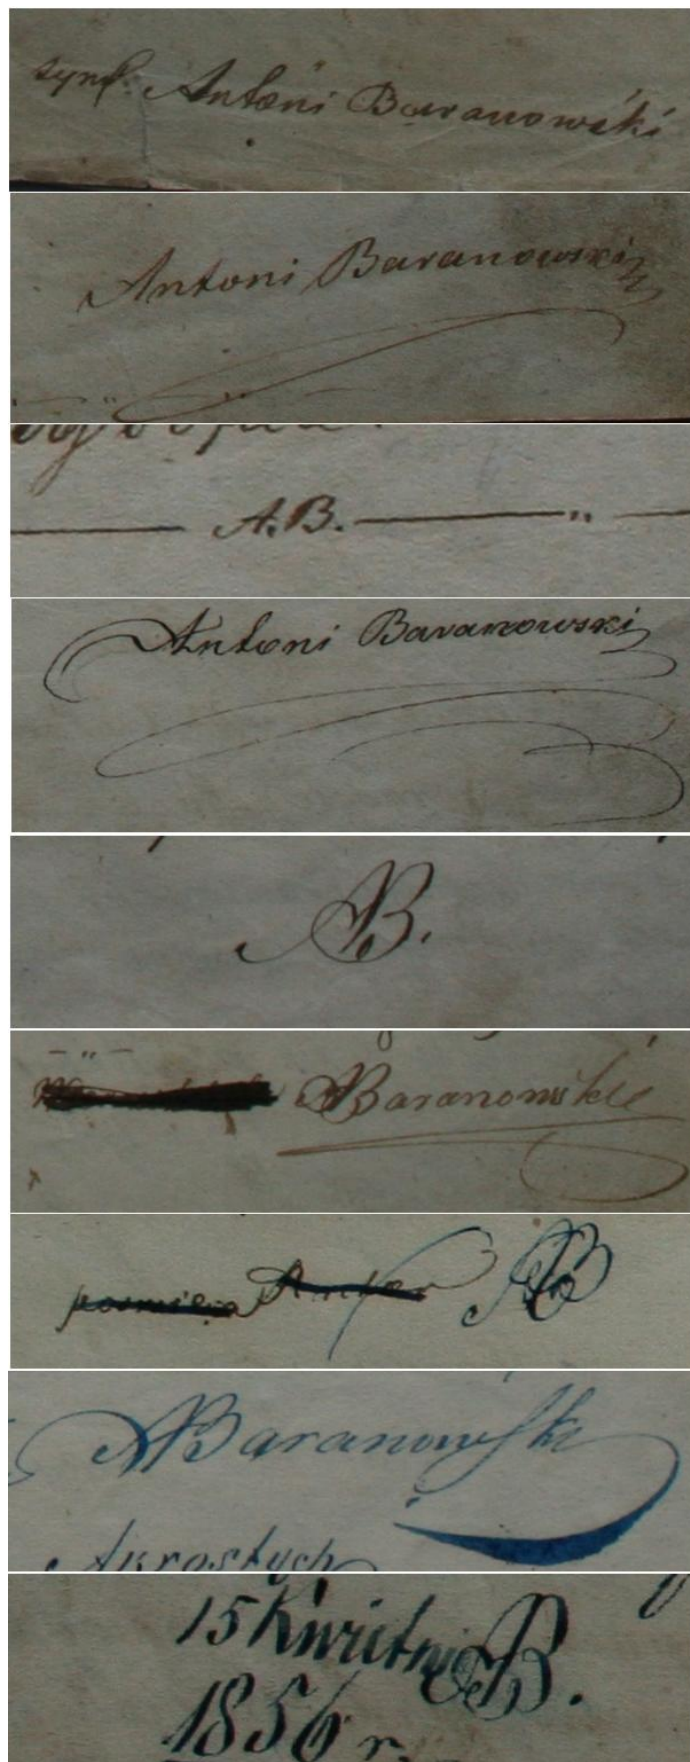 Antoni Baranowski
Antoni Baranowski
A.B.
Antoni Baranowski
AB.
ABaranowski
AB
ABaranowski
Akrostych
15 Kwietnia AB.
1856 r.